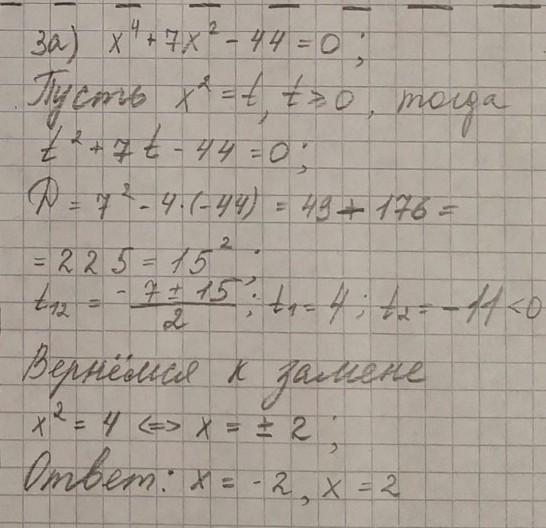 3а) x⁴ + 7x² - 44 = 0 ;
Пусть x² = t, t ≥ 0, тогда
t² + 7t - 44 = 0;
D = 7² - 4·(-44) = 49 + 176 =
= 225 = 15² ;
t₁₂ = (-7 ± 15)/2 ; t₁ = 4 ; t₂ = -11 < 0
Вернёмся к замене
x² = 4 <=> x = ± 2 ;
Ответ: x = -2, x = 2